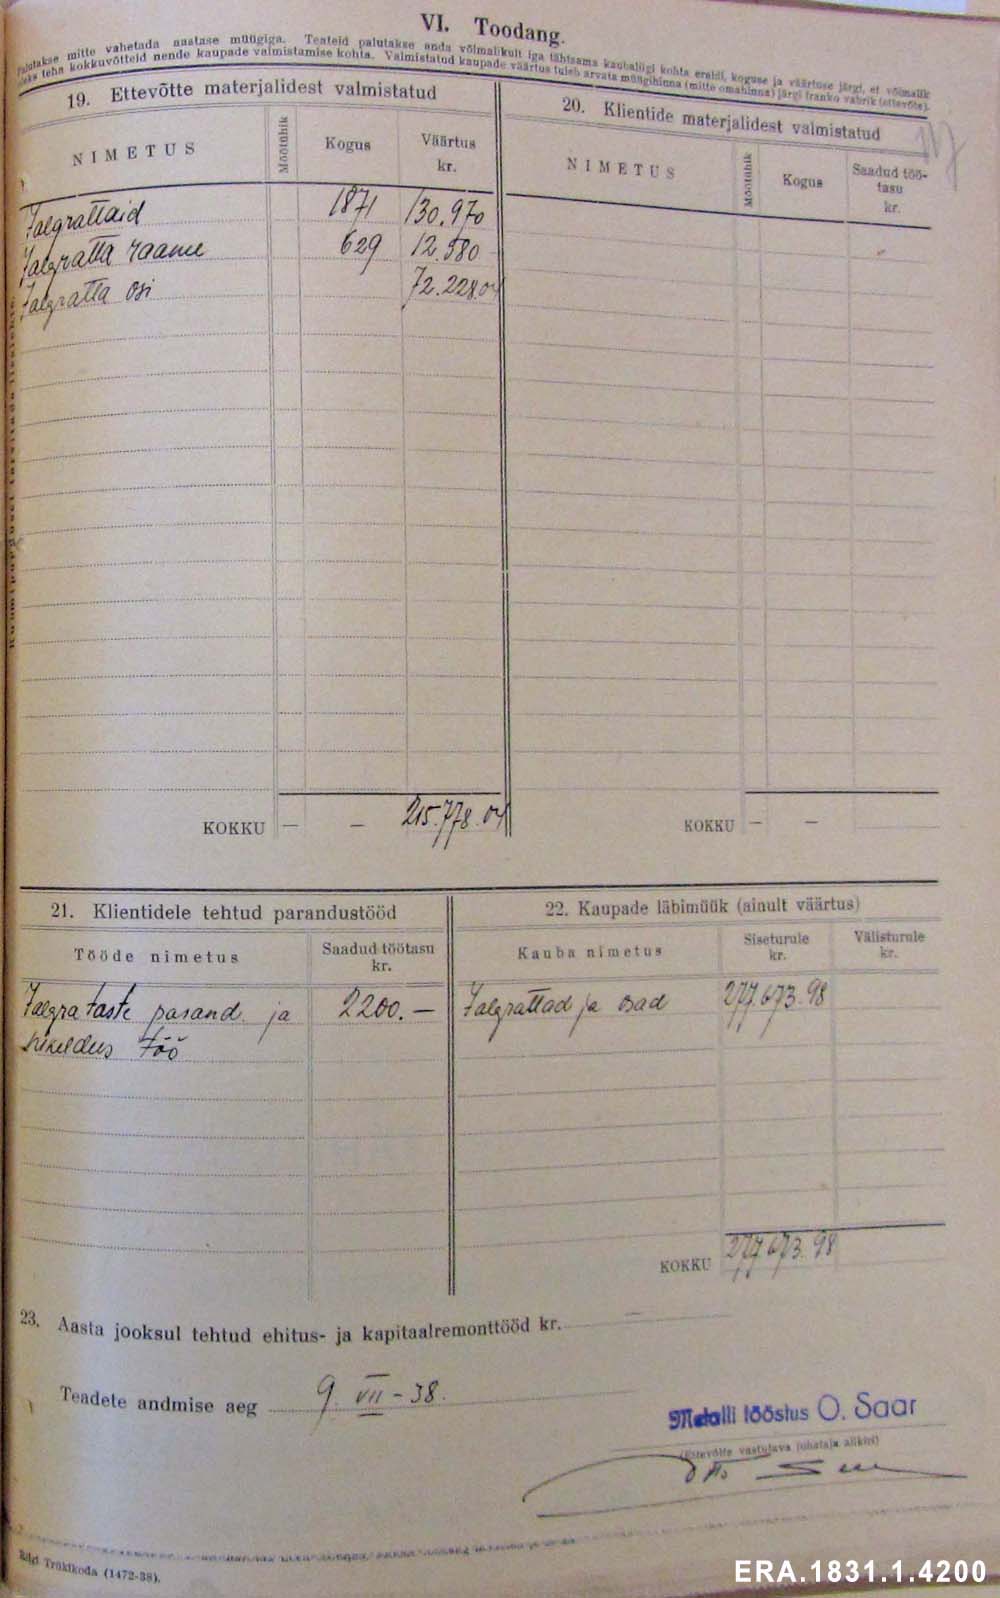 VI. Toodang.
Palutakse mitte vahetada aastase müügiga. Teateid palutakse anda võimalikult iga tähtsama kaubaliigi kohta eraldi, koguse ja väärtuse järgi, et võimalik
oleks teha kokkuvõtteid nende kaupade valmistamise kohta. Valmistatud kaupade väärtus tuleb arvata müügihinna (mitte omahinna) järgi franko vabrik (ettevõte).
19. Ettevõtte materjalidest valmistatud
NIMETUS Mõõtühik Kogus Väärtus kr.
Jalgrattaid 1871 130.970
Jalgratta raame 629 12.580
Jalgratta osi 72.228.04
KOKKU — — 215.778.04
20. Klientide materjalidest valmistatud
NIMETUS Mõõtühik Kogus Saadud töötasu kr.
KOKKU — —
21. Klientidele tehtud parandustööd
Tööde nimetus Saadud töötasu kr.
Jalgrataste parand. ja 2200.—
nikeldus töö
22. Kaupade läbimüük (ainult väärtus)
Kauba nimetus Siseturule kr. Välisturule kr.
Jalgrattad ja osad 277.673.98
KOKKU 277.673.98
23. Aasta jooksul tehtud ehitus- ja kapitaalremonttööd kr. —
Teadete andmise aeg 9. VII - 38.
Metalli tööstus O. Saar
(Ettevõtte vastutava juhataja allkiri)
Riigi Trükikoda (1472-38).
ERA.1831.1.4200